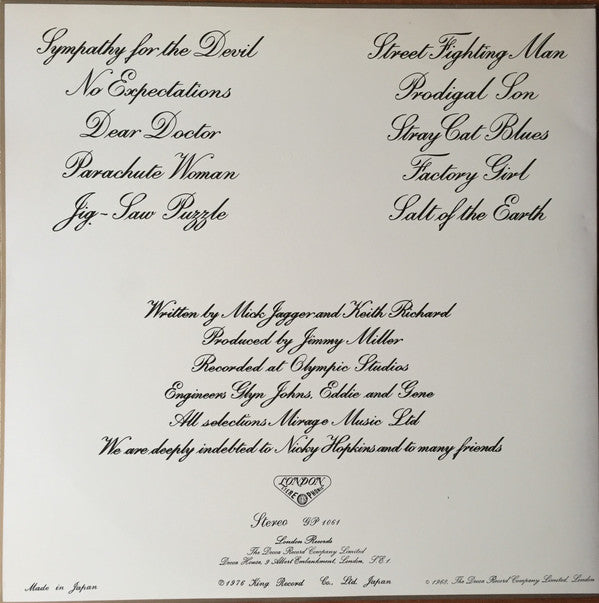 Sympathy for the Devil
No Expectations
Dear Doctor
Parachute Woman
Jig-Saw Puzzle
Street Fighting Man
Prodigal Son
Stray Cat Blues
Factory Girl
Salt of the Earth
Written by Mick Jagger and Keith Richard
Produced by Jimmy Miller
Recorded at Olympic Studios
Engineers Glyn Johns, Eddie and Gene
All selections Mirage Music Ltd
We are deeply indebted to Nicky Hopkins and to many friends
LONDON
Stereo GP 1061
London Records
The Decca Record Company Limited
Decca House, 9 Albert Embankment, London, S.E.1
Made in Japan
© 1976 King Record Co., Ltd. Japan
© 1968, The Decca Record Company Limited, London